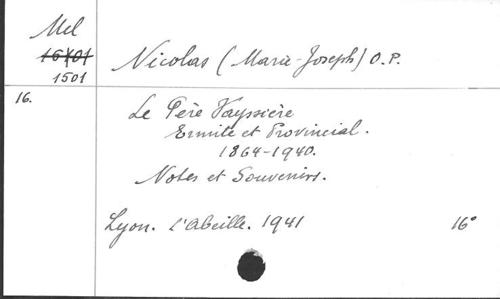 Mel
16401
1501
Nicolas (Marie-Joseph) O.P.
16.
Le Père Vayssière
Ermite et Provincial.
1864-1940.
Notes et Souvenirs.
Lyon. l'Abeille. 1941 16°